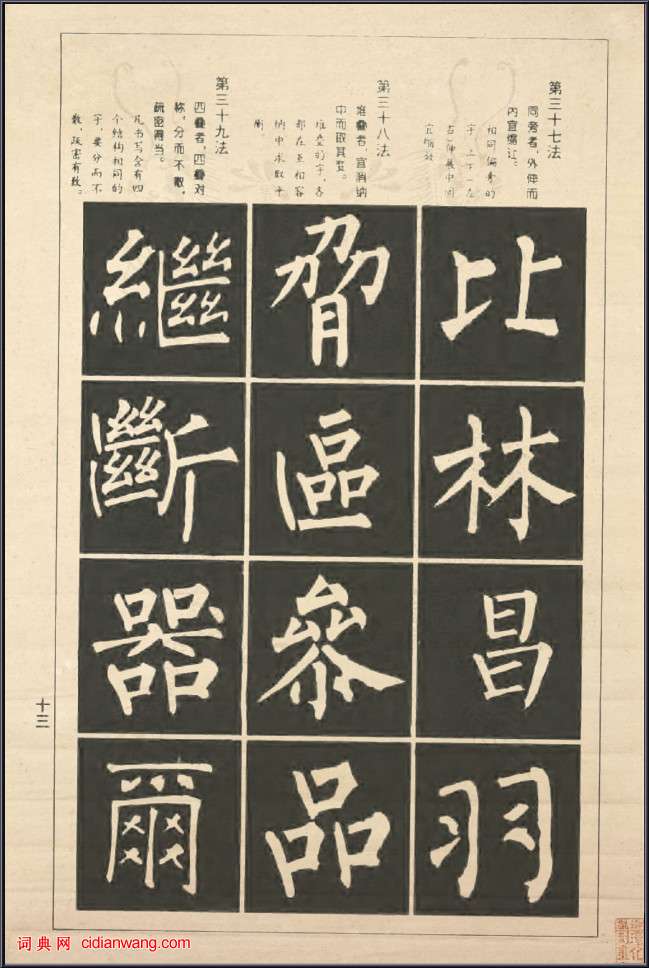 第三十七法
同旁者，外伸而
内宜缩让。
相同偏旁的
字，上下一左
右伸展中间
宜
第三十八法
堆叠者，宜消纳
中而取其
堆叠的字，各
部在互相容
纳中求取平
衡
第三十九法
四叠者，四叠对
称，分而不散，
疏密得当。
凡书写含有四
个结构相同的
字，要分而不
散，疏密有致。
比林昌羽
脅區參品
繼斷器爾
十三
词典网 cidianwang.com